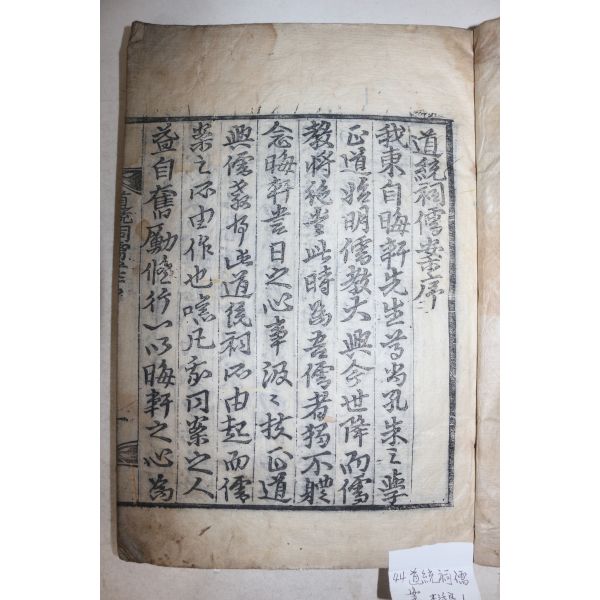 道統祠儒案序
我東自晦軒先生尊尚孔朱之學
正道始明儒教大興今世降而儒
教將絶當此時為吾儒者獨不體
念晦軒當日之心事汲〻扶正道
興儒教乎此道統祠所由起而儒
案之所由作也嗚凡我同案之人
益自奮勵修行以晦軒之心為
道統祠儒案
一
44 道統祠儒